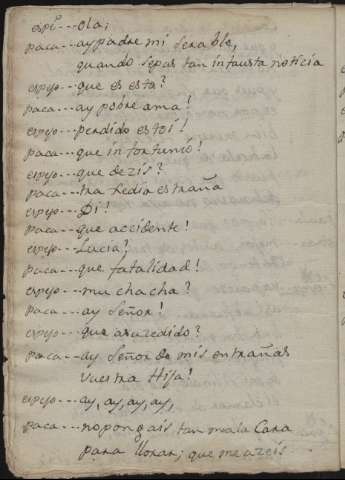 espº---ola;
paca---ay padre mi serable,
quando sepas tan infausta noticia
espejo---que es esta?
paca---ay pobre ama!
espejo---perdido estoi!
paca---que infortunio!
espejo---que dezis?
paca---tra Jedia estraña
espejo---Di!
paca---que accidente!
espejo---Lucia?
paca---que fatalidad!
espejo---mu chacha?
paca---ay Señor!
espejo---que asuzedido?
paca---ay Señor de mis entrañas
vuestra Hija!
espejo---ay, ay, ay, ay,
paca---no pongais tan mala Cara
para llorar; que me azeis